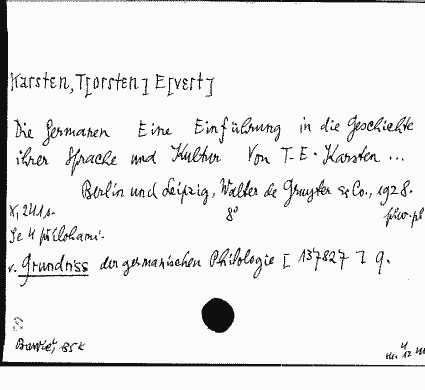 Karsten, T[orsten] E[vert]
Die Germanen Eine Einführung in die Geschichte
ihrer Sprache und Kultur Von T. E. Karsten ...
Berlin und Leipzig, Walter de Gruyter & Co., 1928.
X, 241 s. 8°
v. Grundriss der germanischen Philologie [137827] 9.